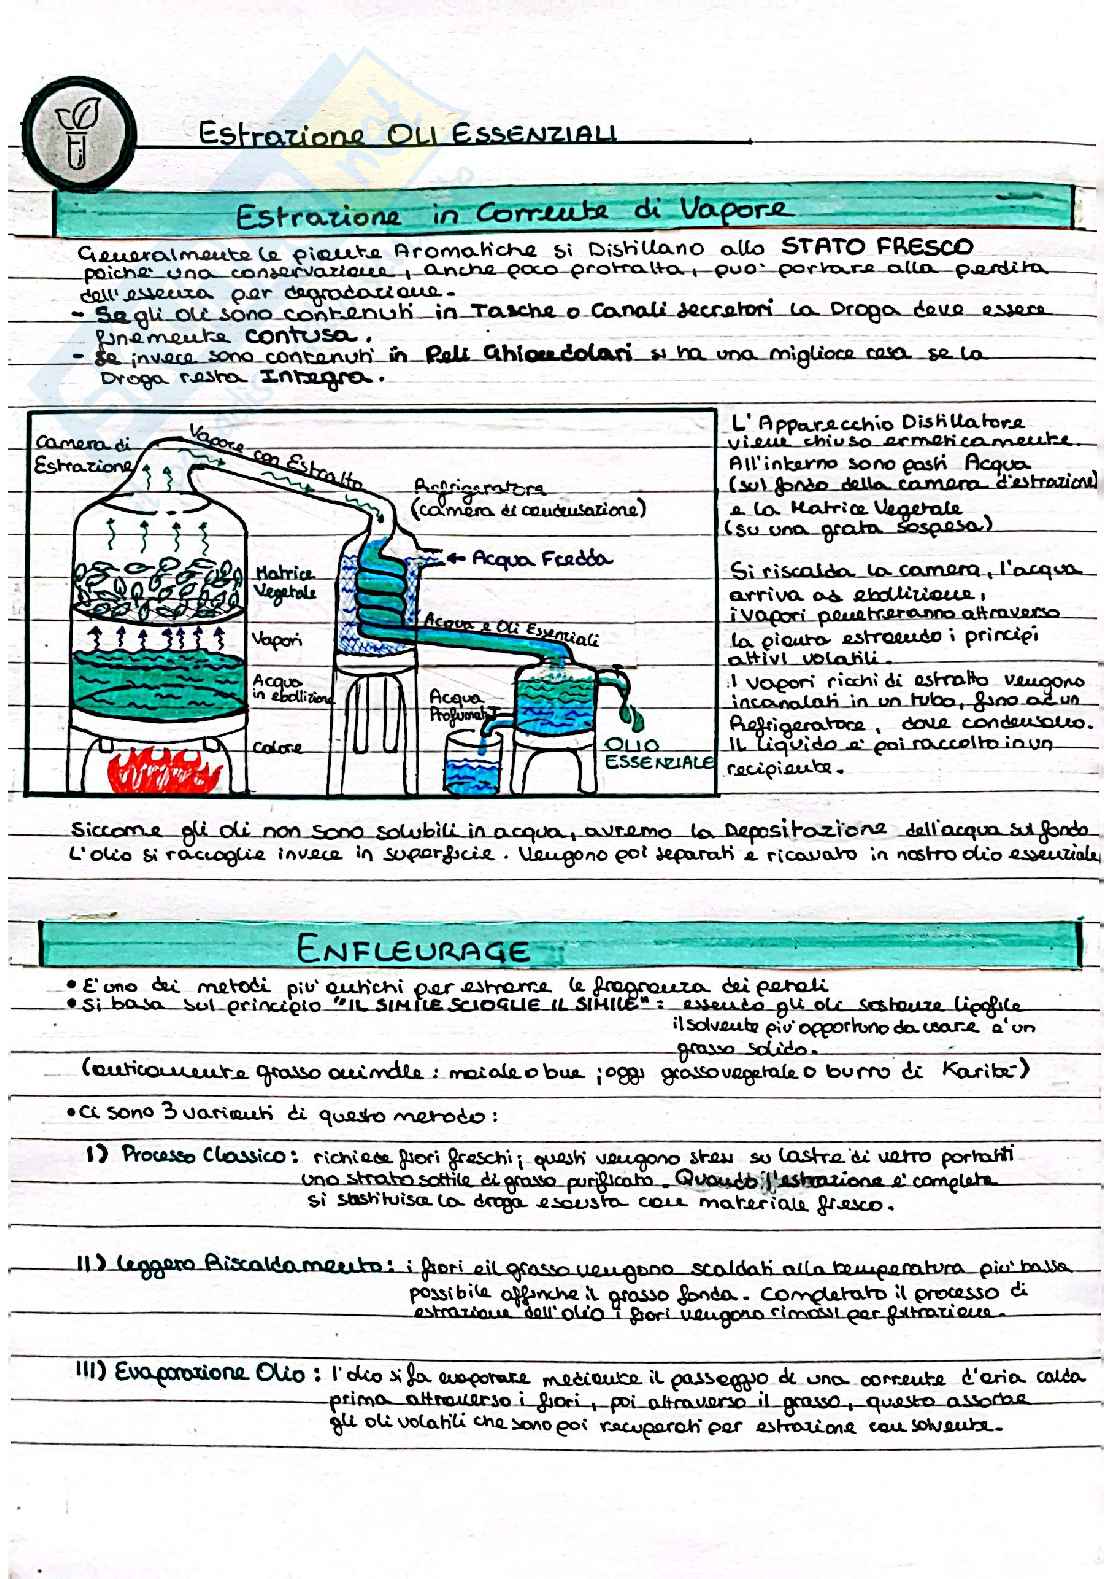 Estrazione OLI ESSENZIALI
Estrazione in Corrente di Vapore
Generalmente le piante Aromatiche si Distillano allo STATO FRESCO
poichè una conservazione, anche poco protratta, può portare alla perdita
dell'essenza per degradazione.
- Se gli oli sono contenuti in Tasche o Canali secretori la Droga deve essere
finemente contusa.
- Se invece sono contenuti in Peli Ghiandolari si ha una migliore resa se la
Droga resta Integra.
Camera di
Estrazione
Vapore con Estratto
Refrigeratore
(camera di condensazione)
← Acqua Fredda
Matrice
Vegetale
Vapori
Acqua e Oli Essenziali
Acqua
in ebollizione
Acqua
Profumata
Calore
OLIO
ESSENZIALE
L'Apparecchio Distillatore
viene chiuso ermeticamente.
All'interno sono posti Acqua
(sul fondo della camera d'estrazione)
e la Matrice Vegetale
(su una grata sospesa)
Si riscalda la camera, l'acqua
arriva ad ebollizione,
i vapori penetreranno attraverso
la pianta estraendo i principi
attivi volatili.
I vapori ricchi di estratto vengono
incanalati in un tubo, fino ad un
Refrigeratore, dove condensano.
Il liquido è poi raccolto in un
recipiente.
Siccome gli oli non sono solubili in acqua, avremo la Depositazione dell'acqua sul fondo
L'olio si raccoglie invece in superficie. Vengono poi separati e ricavato in nostro olio essenziale
ENFLEURAGE
• E' uno dei metodi più antichi per estrarre le fragranza dei petali
• Si basa sul principio "IL SIMILE SCIOGLIE IL SIMILE": essendo gli oli sostanze lipofile
il solvente più opportuno da usare è un
grasso solido.
(anticamente grasso animale: maiale o bue ; oggi grasso vegetale o burro di Karitè)
• Ci sono 3 varianti di questo metodo:
I) Processo Classico: richiede fiori freschi; questi vengono stesi su lastre di vetro portanti
uno strato sottile di grasso purificato. Quando l'estrazione è completa
si sostituisce la droga esausta con materiale fresco.
II) Leggero Riscaldamento: i fiori e il grasso vengono scaldati alla temperatura più bassa
possibile affinchè il grasso fonda. Completato il processo di
estrazione dell'olio i fiori vengono rimossi per filtrazione.
III) Evaporazione Olio: l'olio si fa evaporare mediante il passaggio di una corrente d'aria calda
prima attraverso i fiori, poi attraverso il grasso, questo assorbe
gli oli volatili che sono poi recuperati per estrazione con solvente.